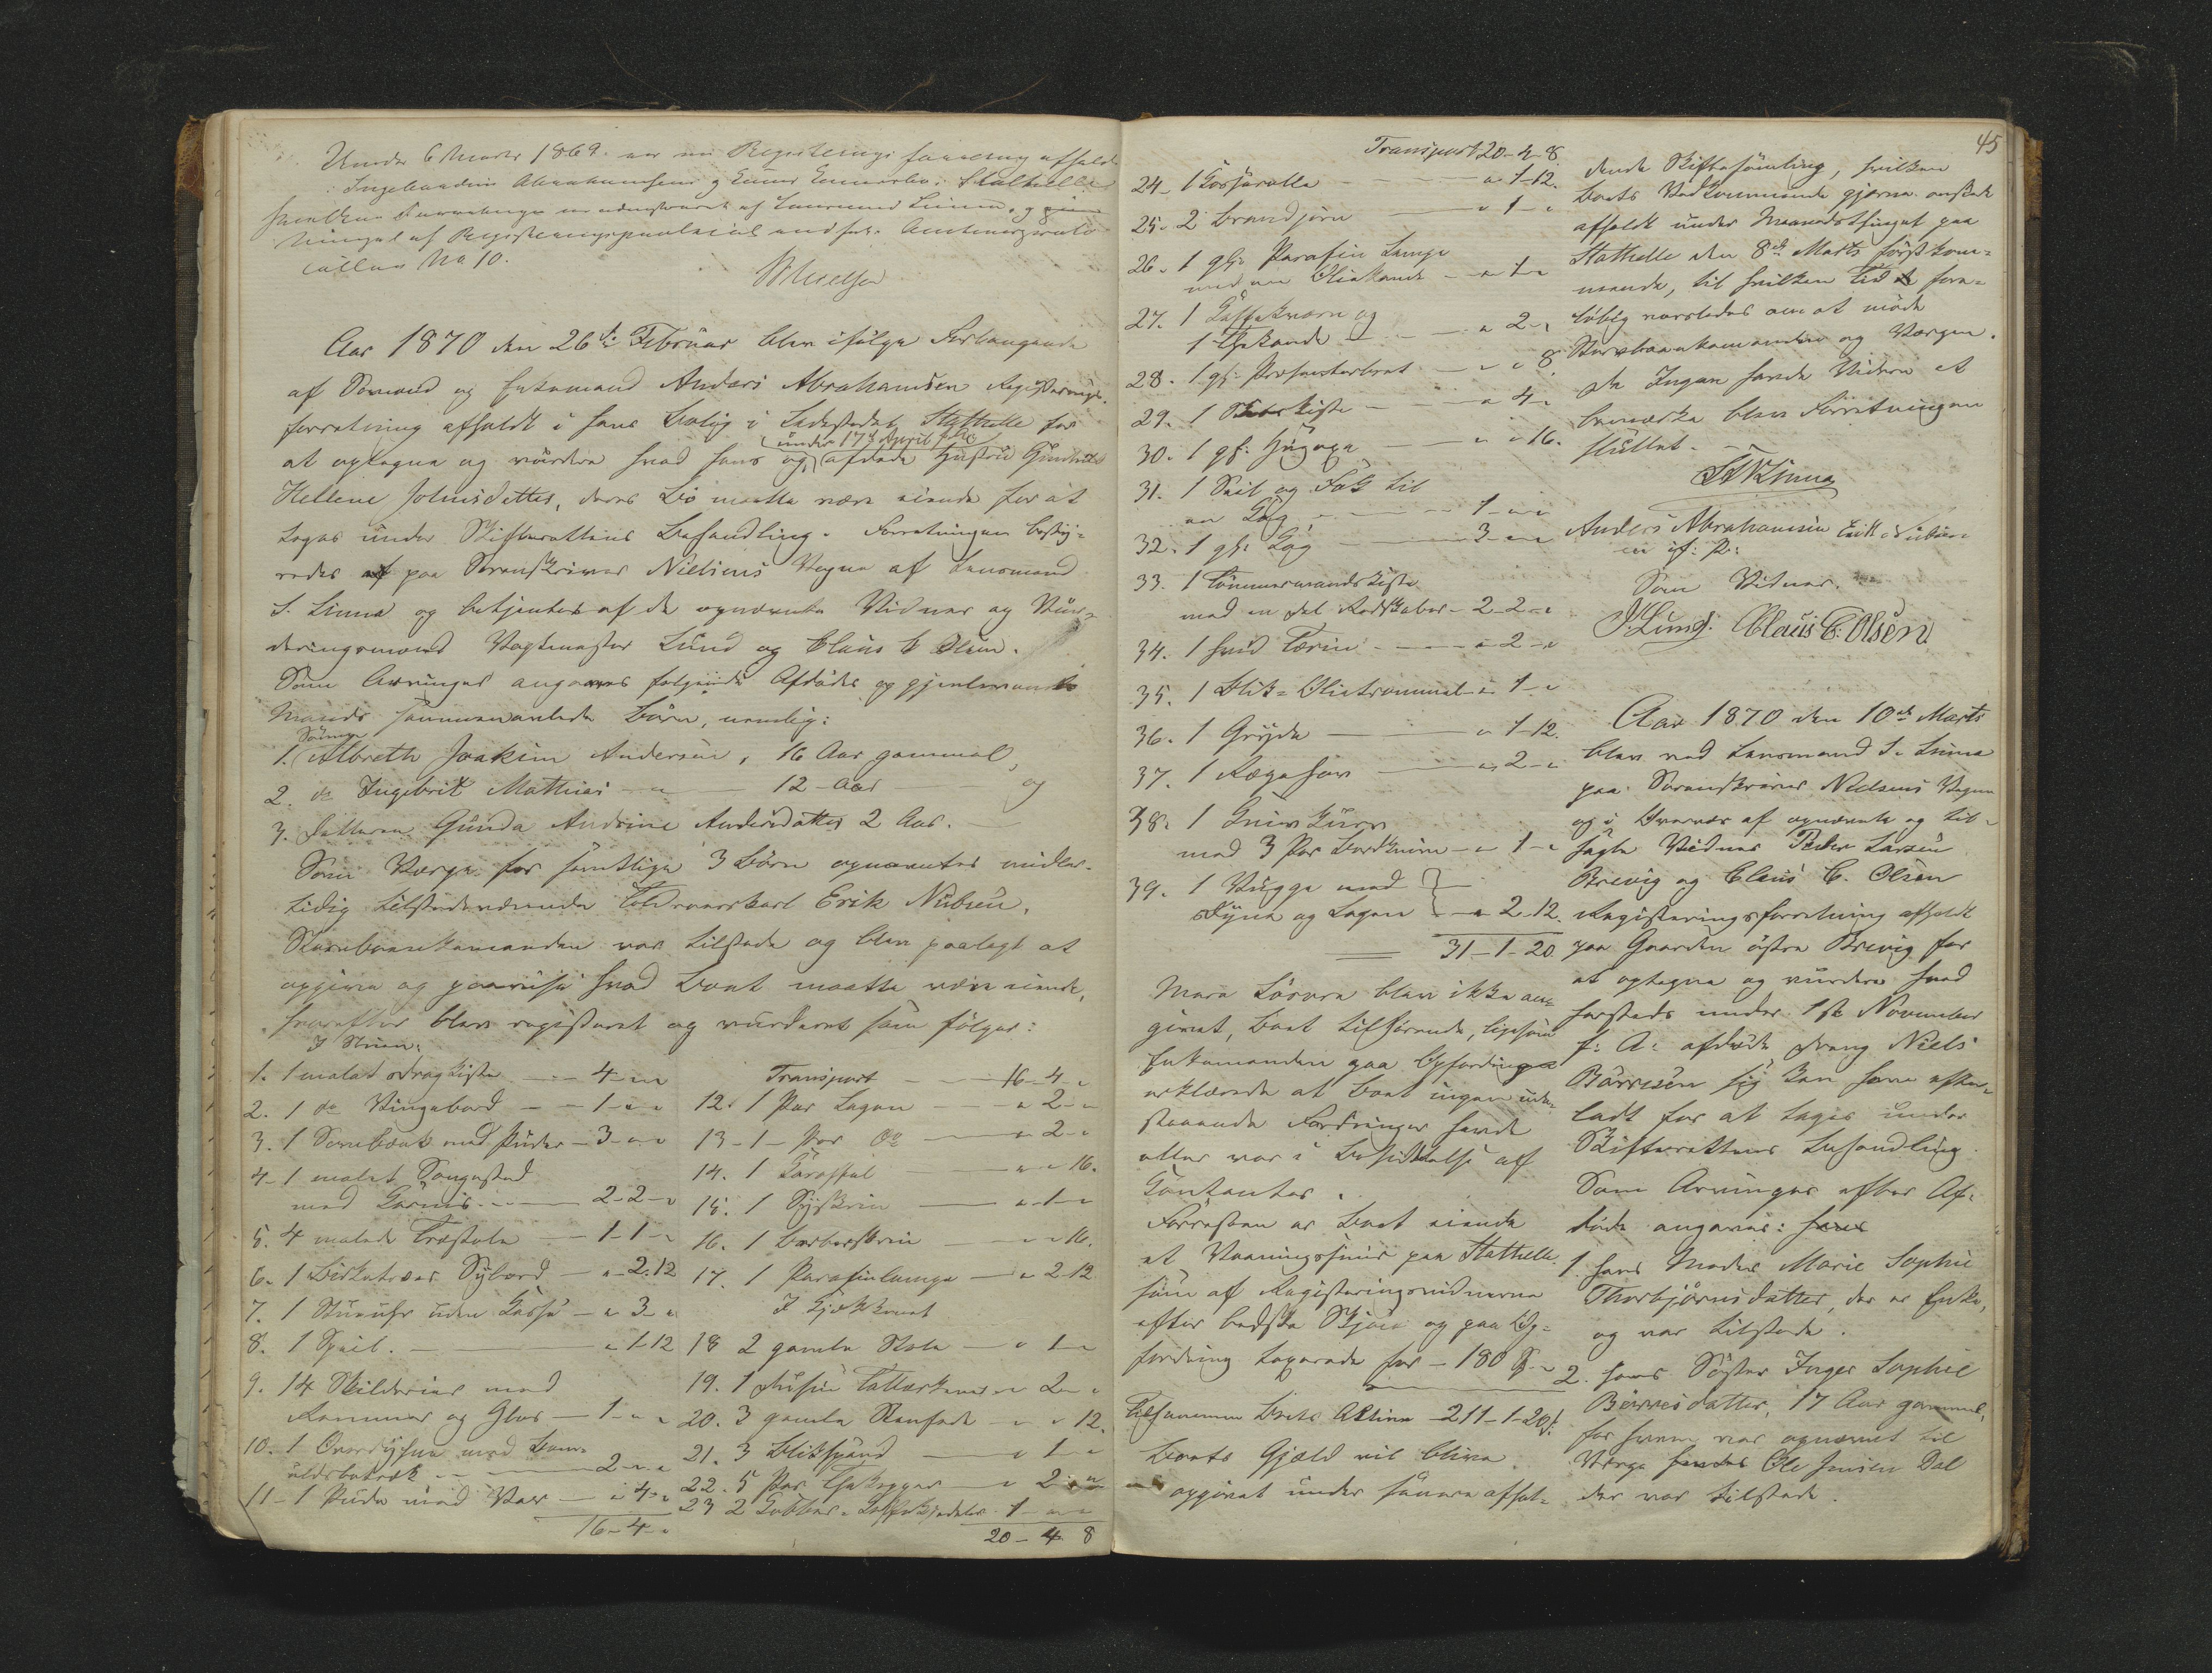 Under 6 Marts 1869 var en Registerings forretning afholdt
i Ingebaardine Abrahamsens Stathelle
hvilken Forretning er administreret af Lensmand Linna, og
af Registeringsprotocol
No 10.
Nielsen
Aar 1870 den 26de Februar blev ifølge Forlangende
af Sømand og Enkemand Anders Abrahamsen Registerings-
forretning afholdt i hans Bolig i Ladestedet Stathelle for
(under 17de April f. A.)
at optegne og vurdere hvad hans og afdøde Hustru Gunhild
Hellene Johnsdatter, deres Bo maatte være eiende for at
tages under Skifterettens Behandling. Forretningen besty-
redes af paa Sorenskriver Nielsens Vegne af Lensmand
S. Linna og betjentes af de opnævnte Vidner og Vur-
deringsmænd Vagtmester Lund og Claus C Olsen.
Som Arvinger angaves følgende Afdødes og gjenlevende
Mands sammenavlede Børn, nemlig:
Sønnen
1. Albreth Joakim Andersen, 16 Aar gammel,
2. do Ingebrit Mathias - 12 - Aar - og
3. Datteren Gunda Andrine Andersdatter 2 Aar.
Som Værge for samtlige 3 Børn opnævntes midler-
tidig tilstedeværende Erik Nilsen.
Stervboenkemanden var tilstede og blev paalagt at
opgive og paavise hvad Boet maatte være eiende,
hvorefter blev registeret og vurderet som følger:
I Stuen:
1. 1 malet Dragkiste - 4 - " "
2. 1 do Vingebord - 1 - " "
3. 1 Sovebænk med Puder - 3 - " "
4. 1 malet Sengested
med Gardiner - 2 - 2 - "
5. 4 malede Træstole - 1 - 1 - "
6. 1 Birketræes Sybord - " - 2 - 12
7. 1 Stueuhr uden Kasse - " 3 "
8. 1 Speil - " 1 - 12
9. 14 Skilderier med
Rammer og Glas - 1 - " "
10. 1 Overdyne med Bom-
uldsbetræk - 2 - " "
11. 1 Pude med Vaar - " 4 - "
16 - 4 - "
Transport - 16 - 4 - "
12. 1 Par Lagen - " 2 - "
13. 1 - Par do - " 2 - "
14. 1 Karaffel - " " 16.
15. 1 Syskrin - " 1 - "
16. 1 Barberskrin - " " 16.
17. 1 Parafinlampe - " 2 - 12
I Kjøkkenet
18 2 gamle Stole - " 1 - "
19. 1 Dusin Tallerkener " 2 - "
20. 3 gamle Stenfade - " " 12.
21. 3 Blikspand - " 1 - "
22. 5 Par Thekopper - " 2 - "
23 2 Kobber-Kaffekjedeler 1 - " "
20 - 4 8
45
Transport 20 - 4 - 8
24. 1 - " 1 - 12.
25. 2 Brandjern - " 1 - "
26. 1 gl: Parafin Lampe
med en Oliekande - " 1 - "
27. 1 Kaffekværn og
1 Thekande - " 2 - "
28. 1 gl: Presenterbret - " " 8.
29. 1 Skibskiste - " 4 - "
30. 1 gl: Hugøxe - " " 16.
31. 1 Seil og Fok til
en Eeg - 1 - " "
32. 1 gl: Eeg - 3 - " "
33. 1 Tømmermandskiste
med en Del Redskaber - 2 - 2 - "
34. 1 hvid Terin - " 2 - "
35. 1 Blik-Olietrommel - " 1 - "
36. 1 Gryde - " 1 - 12.
37. 1 - " 2 - "
38. 1 Knivkurv
med 3 Par Bordknive - " 1 - "
39. 1 Vugge med
Dyne og Lagen - " 2 - 12.
31 - 1 - 20.
Mere Løsøre blev ikke an-
givet, Boet tilhørende, ligesom
Enkemanden paa Opfordring
erklærede at Boet ingen ude-
staaende Fordringer havde
eller var i Besiddelse af
Contanter.
Forresten er Boet eiende
et Vaaningshuus paa Stathelle
som af Registeringsvidnerne
efter bedste Skjøn og paa Op-
fordring taxerede for - 180 Sp. "
Tilsammen Boets Aktiva - 211 - 1 - 20 s.
Boets Gjæld vil blive
opgivet under senere afhol-
dende Skiftesamling, hvilken
Boets Vedkommende gjerne ønskede
afholdt under Maanedsthinget paa
Stathelle den 8de Marts førstkom-
mende, til hvilken Tid de fore-
løbig varsledes om at møde
Stervboenkemanden og Værgen.
Da Ingen havde Videre at
bemærke blev Forretningen
sluttet.
S Linna
Anders Abrahamsen Erik Nilsen
m: f: P:
Som Vidner.
J. Lund. Claus C: Olsen
Aar 1870 den 10de Marts
blev ved Lensmand S. Linna
paa Sorenskriver Nielsens Vegne
og i Overvær af opnævnte og til-
sagte Vidner Peder Larsen
Brevig og Claus C. Olsen
Registeringsforretning afholdt
paa Gaarden østre Brevig for
at optegne og vurdere hvad
forsteds under 1ste November
f: A: afdøde Dreng Niels
Børresen sig kan have efter-
ladt for at tages under
Skifterettens Behandling.
Som Arvinger efter Af-
døde angaves: hans
1. hans Moder Marie Sophie
Thorbjørnsdatter, der er Enke,
og var tilstede.
2. hans Søster Inger Sophie
Børresdatter, 17 Aar gammel,
for hvem var opnævnt til
Værge Ole Jensen Dal
der var tilstede.